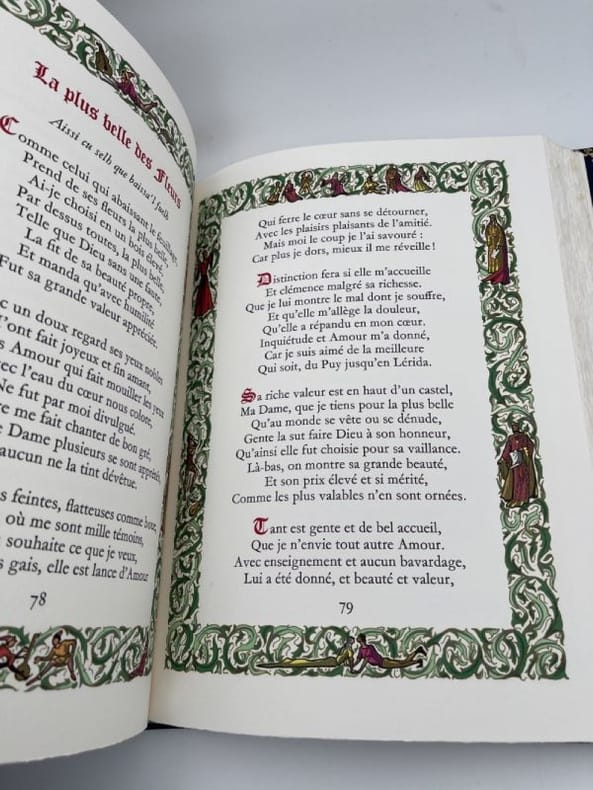 La plus belle des Fleurs
Aissi cu selh que baissa'l fuelh
Comme celui qui abaissant le feuillage,
Prend de ses fleurs la plus belle,
Ai-je choisi en un bois élevé,
Par dessus toutes, la plus belle,
Telle que Dieu sans une faute,
La fit de sa beauté propre,
Et manda qu'avec humilité
Fut sa grande valeur appréciée.
un doux regard ses yeux nobles
ont fait joyeux et fin amant,
Amour qui fait mouiller les yeux
l'eau du cœur nous colore,
Ne fut par moi divulgué.
me fait chanter de bon gré,
Dame plusieurs se sont appréciés,
aucun ne la tint dévêtue.
feintes, flatteuses comme
où me sont mille témoins,
souhaite ce que je veux,
gais, elle est lance d'Amour
78
Qui ferre le cœur sans se détourner,
Avec les plaisirs plaisants de l'amitié.
Mais moi le coup je l'ai savouré :
Car plus je dors, mieux il me réveille !
Distinction fera si elle m'accueille
Et clémence malgré sa richesse.
Que je lui montre le mal dont je souffre,
Et qu'elle m'allège la douleur,
Qu'elle a répandu en mon cœur.
Inquiétude et Amour m'a donné,
Car je suis aimé de la meilleure
Qui soit, du Puy jusqu'en Lérida.
Sa riche valeur est en haut d'un castel,
Ma Dame, que je tiens pour la plus belle
Qu'au monde se vête ou se dénude,
Gente la sut faire Dieu à son honneur,
Qu'ainsi elle fut choisie pour sa vaillance.
Là-bas, on montre sa grande beauté,
Et son prix élevé et si mérité,
Comme les plus valables n'en sont ornées.
Tant est gente et de bel accueil,
Que je n'envie tout autre Amour.
Avec enseignement et aucun bavardage,
Lui a été donné, et beauté et valeur,
79